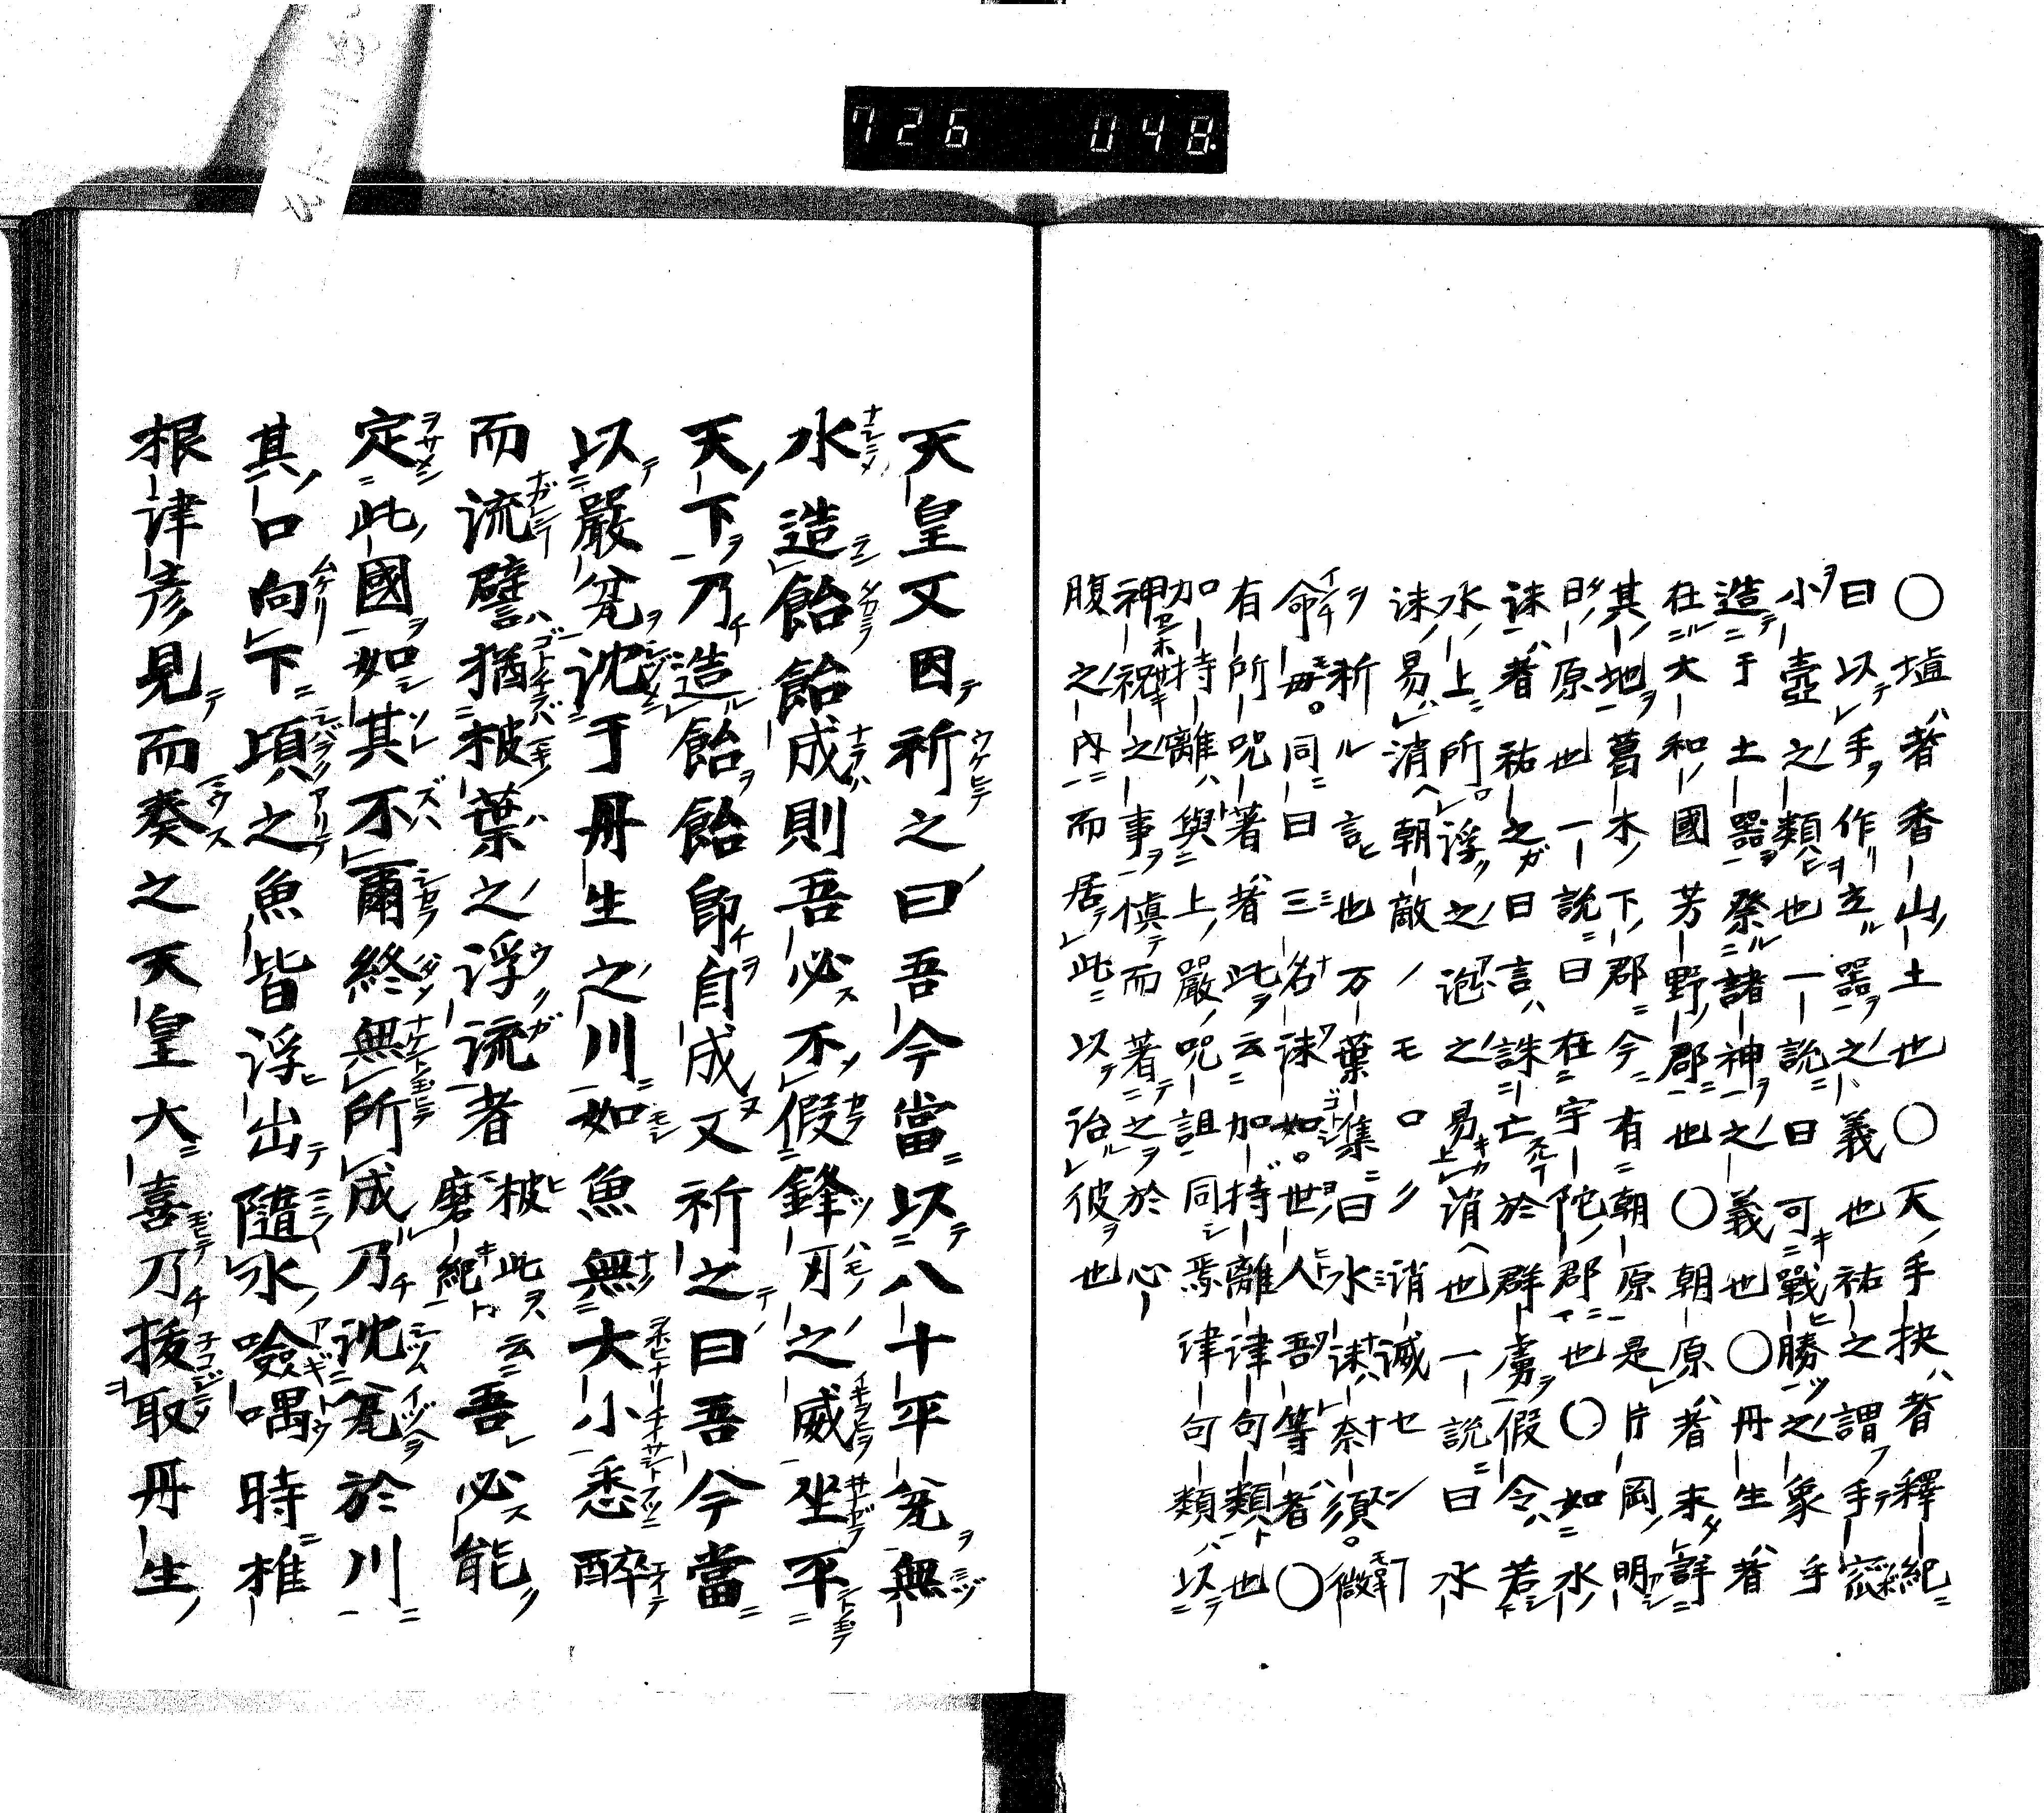 726 048.
○埴者香山土也○天手抉者釋紀
曰以手作立器之義也祐之謂手
小壺之類也一說曰可戰勝之象乎
造于土器祭諸神之義也○丹生者
在大和國芳野郡也○朝原者未詳
其地葛木下郡今有朝原是片岡明
日原也一說曰在宇陀郡也○如水
沫者祐之曰言誅亡於群虜假令若
水上所浮之泡之易消也一說曰水
沫易消朝敵ノモロク消滅セン
ヲ祈ル言也万葉集曰水沫奈須微
命毋同曰三名沫如世人吾等者○
有所呪著者此云加持離津句類也
加持離與上嚴呪詛同焉律句類以
神祝之事慎而著之於心
腹之內而居此以治彼也
天皇又因祈之曰吾今當以八十平瓮無
水造飴飴成則吾必不假鋒刃之威坐平
天下乃造飴飴即自成又祈之曰吾今當
以嚴瓮沈于丹生之川如魚無大小悉醉
而流譬猶柀葉之浮流者柀此云磨紀吾必能
定此國如其不爾終無所成乃沈瓮於川
其口向下頃之魚皆浮出隨水噞喁時椎
根津彥見而奏之天皇大喜乃拔取丹生